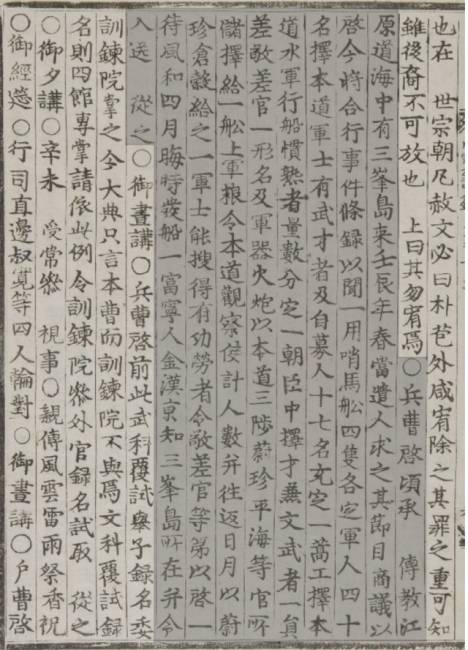 也在　世宗朝凡赦文必曰朴苞外咸宥除之其罪之重可知
雖後裔不可放也　上曰其勿宥焉〇兵曹啓頃承　傳教江
原道海中有三峯島来壬辰年春當遣人求之其節目商議以
啓今將合行事件條錄以聞一用哨馬舩四隻各定軍人四十
名擇本道軍士有武才者及自募人十七名充定一篙工擇本
道水軍行舩慣熟者量數分定一朝臣中擇才兼文武者一員
差敬差官一形名及軍器火炮以本道三陟蔚珍平海等官所
儲擇給一舩上軍粮令本道觀察使計人數幷往返日月以蔚
珍倉穀給之一軍士能搜得有功勞者令敬差官等第以啓一
待風和四月晦時發船一富寧人金漢京知三峯島所在并令
入送　從之〇御晝講〇兵曹啓前此武科覆試擧子錄名委
訓鍊院掌之今大典只言本曹而訓鍊院不與焉文科覆試錄
名則四館專掌請依此例令訓鍊院叅外官錄名試取　從之
〇御夕講〇辛未　受常叅　視事〇親傳風雲雷雨祭香祝
〇御經筵〇行司直邊叔寬等四人輪對〇御晝講〇户曹啓